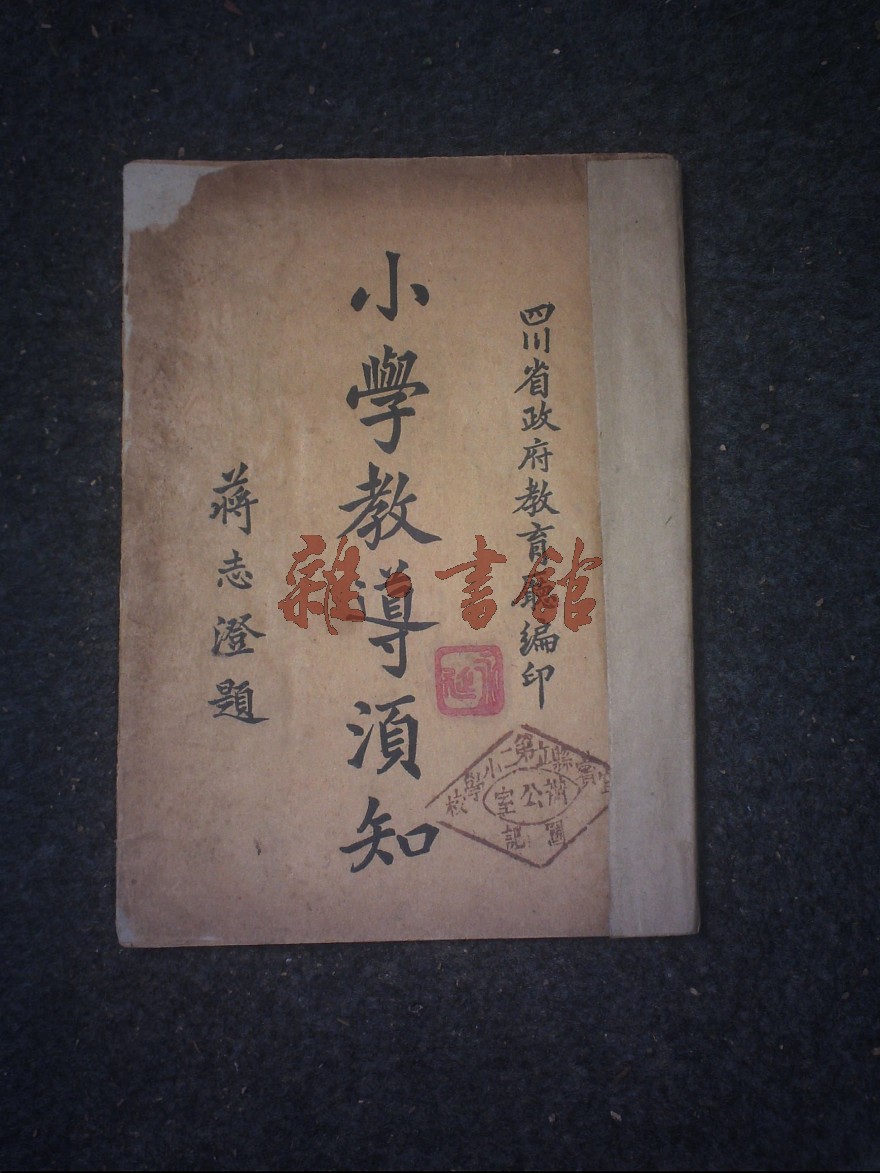 四川省政府教育廳編印
小學教導須知
蔣志澄題
雜·書館
宜賓縣立第二小學校
辦公室
圖記